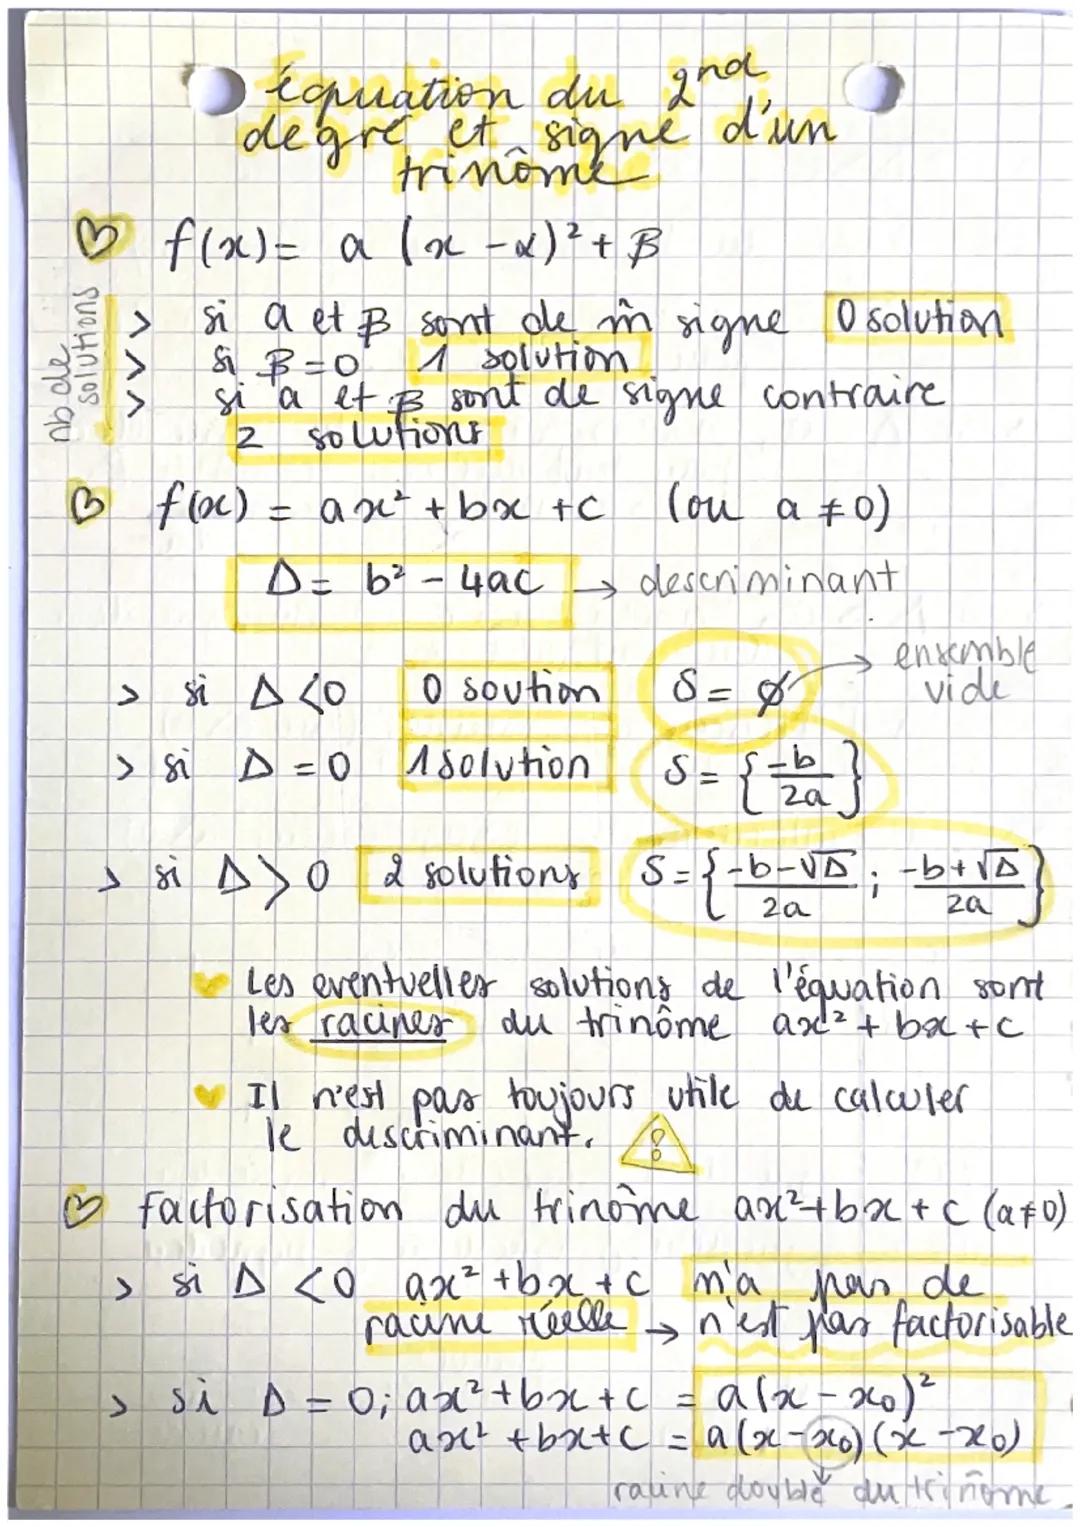 équation du 2nd
degré et signe d'un
trinôme
f(x) = a (x - α)² + β
nb de
solutions
> si a et β sont de m̂ signe 0 solution
> si β = 0 1 solution
> si a et β sont de signe contraire
2 solutions
f(x) = ax² + bx + c (ou a ≠ 0)
Δ = b² - 4ac → descriminant
ensemble
vide
> si Δ < 0 0 soution S = ∅ →
> si Δ = 0 1 solution S = { -b/2a }
> si Δ > 0 2 solutions S = { -b-√Δ/2a ; -b+√Δ/2a }
Les eventuelles solutions de l'équation sont
les racines du trinôme ax² + bx + c
Il n'est pas toujours utile de calculer
le discriminant.
factorisation du trinôme ax²+bx+c (a≠0)
> si Δ < 0 ax² + bx + c n'a pas de
racine réelle → n'est pas factorisable
> si Δ = 0; ax² + bx + c = a(x - x₀)²
ax² + bx + c = a(x - x₀)(x - x₀)
racine double du trinôme